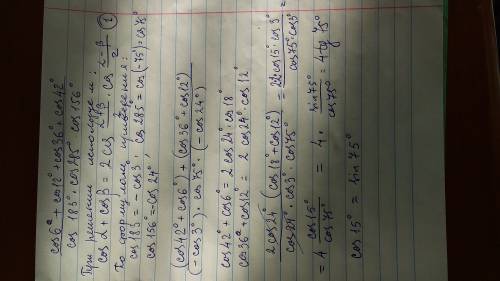 cos6° + cos12° + cos36° + cos42°
cos 183° · cos285° · cos156°
При решении используем:
cos α + cos β = 2 cos (α+β)/2 · cos (α-β)/2 (1)
По формулам приведения:
cos 183° = - cos3° ; cos 285° = cos(-75°) = cos 75°
cos 156° = - cos 24° ;
(cos42° + cos6°) + (cos36° + cos12°)
(- cos3°) · cos75° · (- cos24°)
cos42° + cos6° = 2 cos24° · cos18°
cos36° + cos12° = 2 cos24° · cos12°
2 cos24° (cos18° + cos12°) = 2·2 cos15° · cos3° =
cos24° · cos3° · cos75° cos75° · cos3°
= 4 cos15° = 4 · sin75° = 4 tg 75°
cos75° cos75°
cos 15° = sin 75°